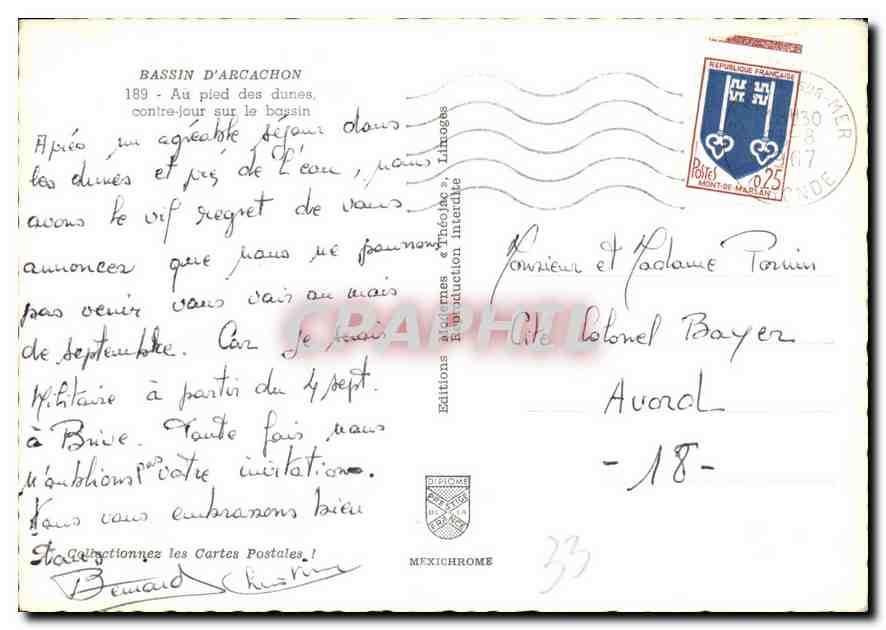 BASSIN D'ARCACHON
189 - Au pied des dunes,
contre-jour sur le bassin
Après un agréable séjour dans
les dunes et près de l'eau, nous
avons le vif regret de vous
annoncer que nous ne pouvons
pas venir vous voir au mois
de septembre. Car je serai
Militaire à partir du 4 sept.
à Brive. Toute fois nous
n'oublions pas votre invitation.
Nous vous embrassons bien
tous.
Bernard Christine
Collectionnez les Cartes Postales !
Editions Modernes « Théojac », Limoges
Reproduction Interdite
DIPLOME
PRESTIGE
DE LA
FRANCE
MEXICHROME
REPUBLIQUE FRANÇAISE
POSTES
0,25
MONT-DE-MARSAN
SUR-MER
30
-8
1967
Monsieur et Madame
Cité Colonel Bayer
Avord
- 18 -
33
CRAPHIL